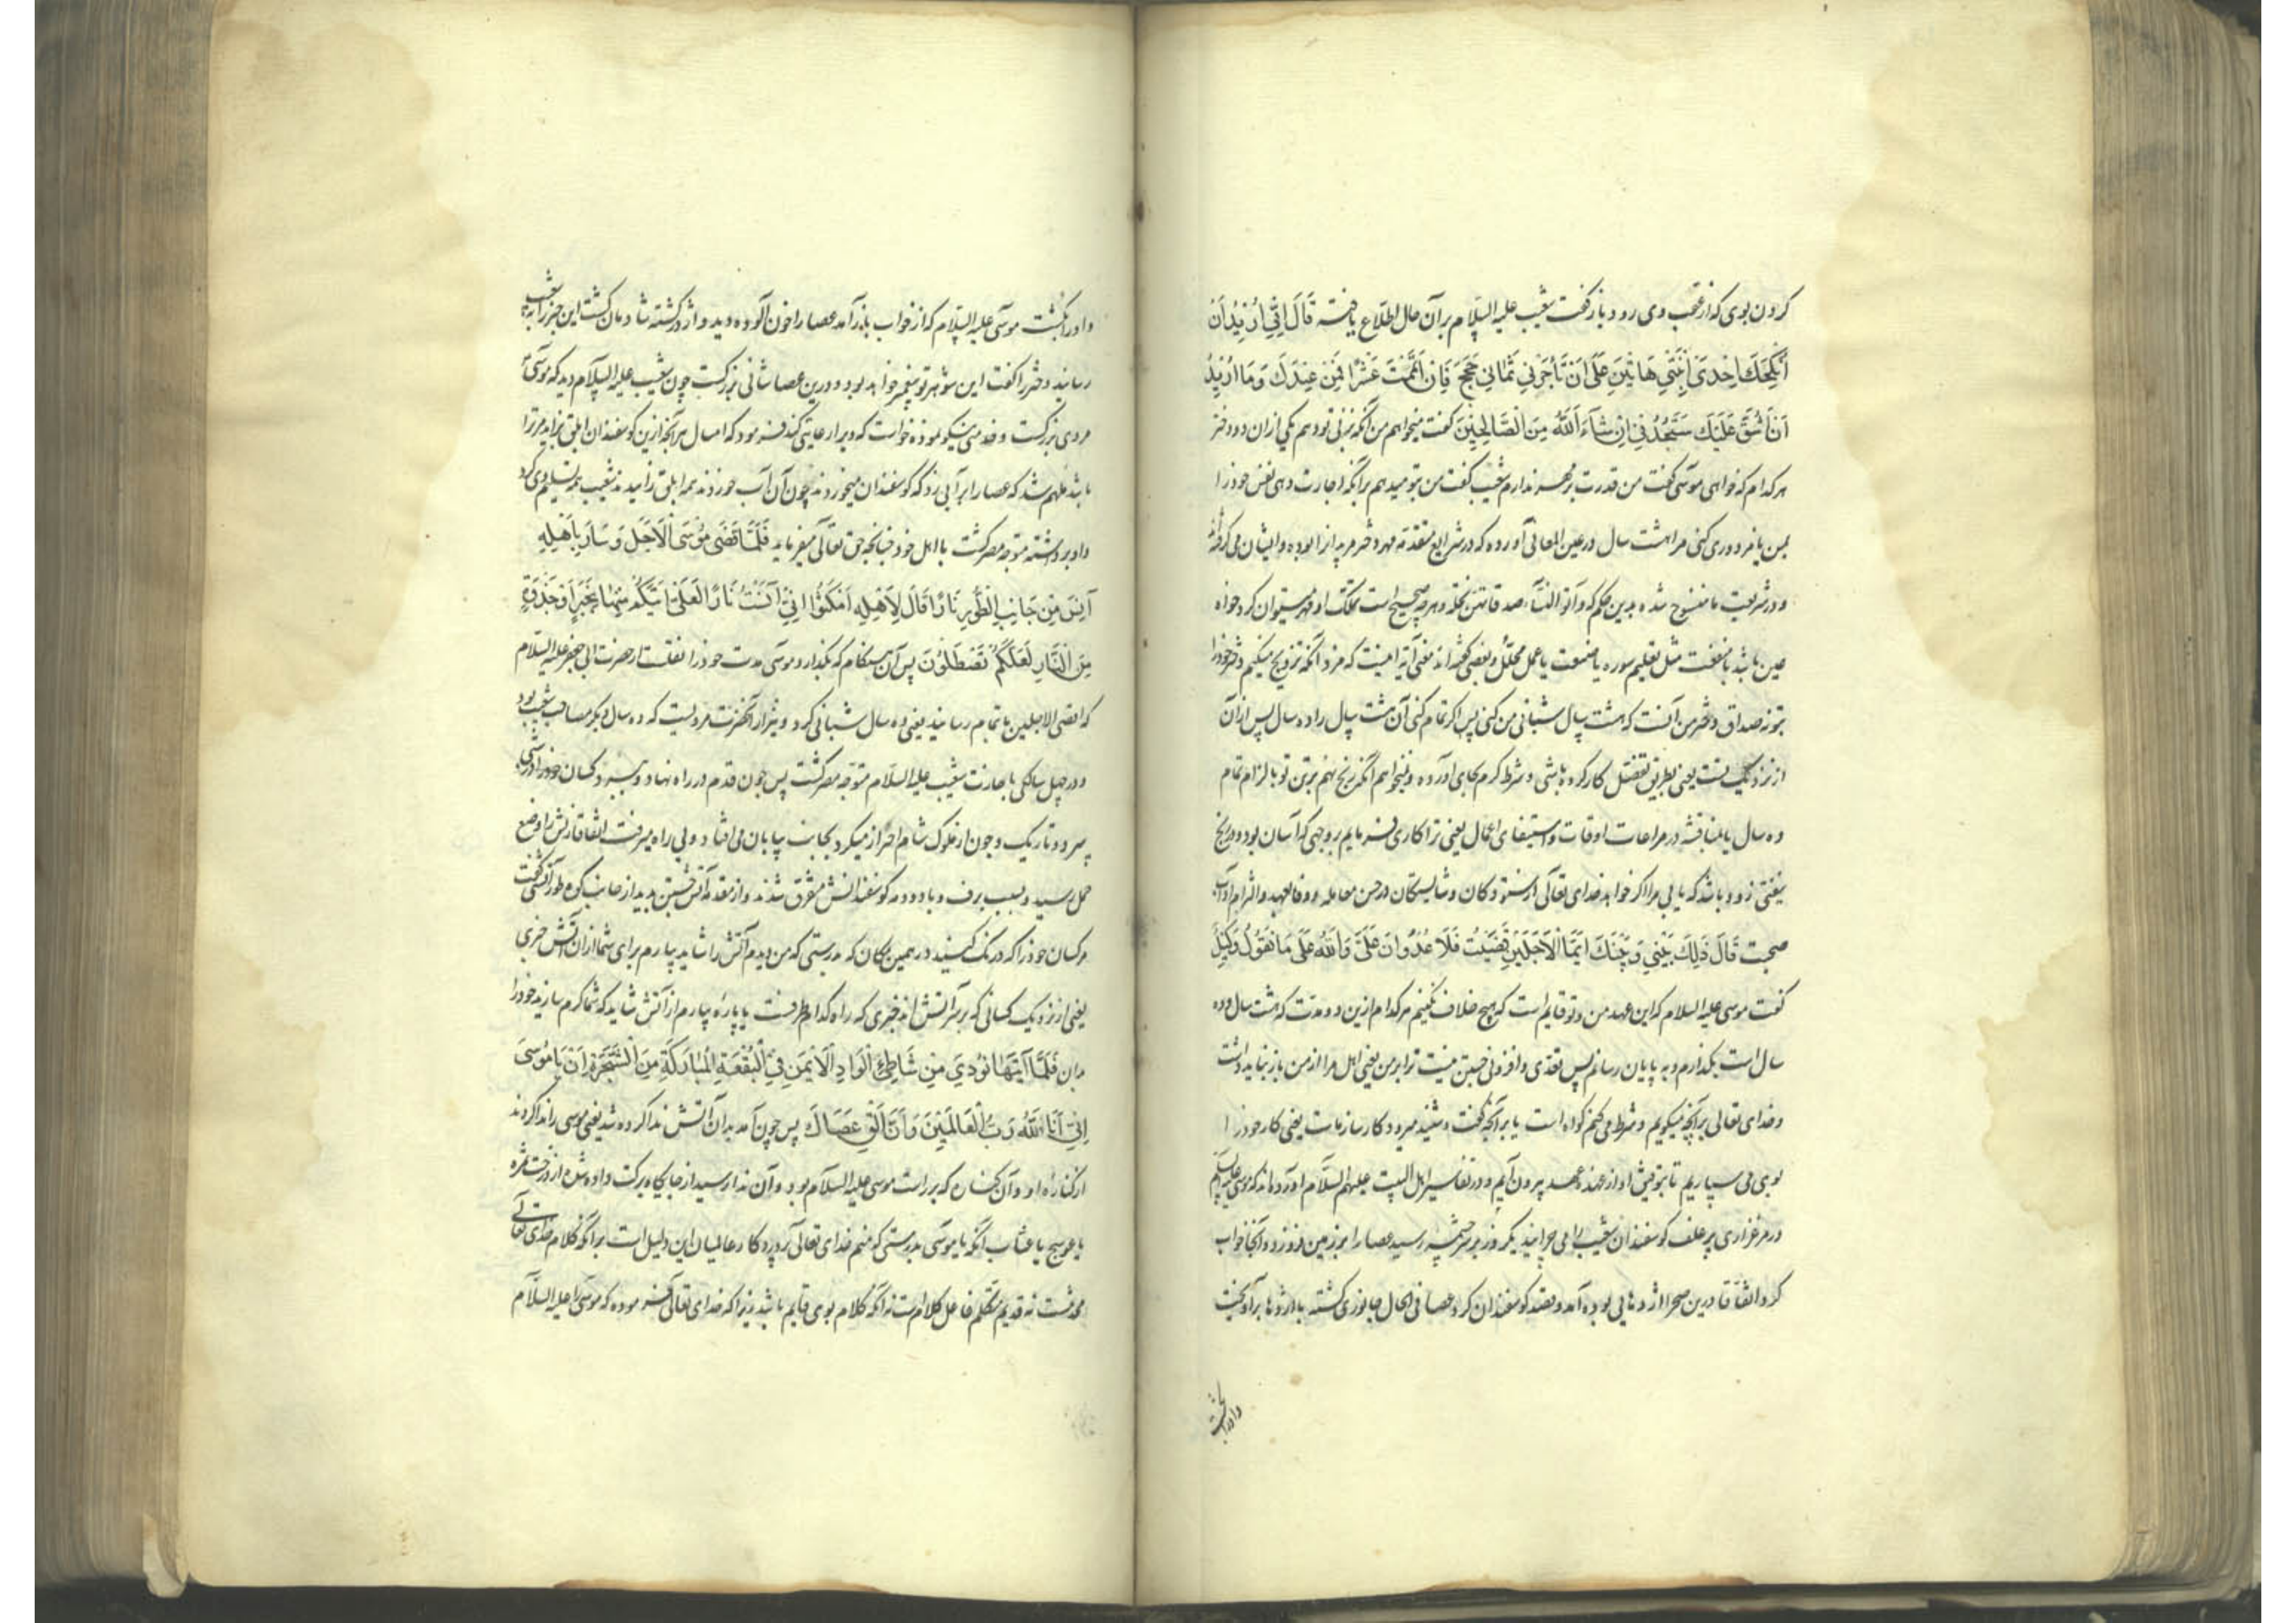 کردن بوی که از عقب وی رود باز گفت شعیب علیه السلام بر آن حال اطلاع یافته قَالَ اِنِّی اُرِیدُ اَنْ
اُنْکِحَكَ اِحْدَى ابْنَتَيَّ هَاتَيْنِ عَلَى اَنْ تَأْجُرَنِي ثَمَانِيَ حِجَجٍ فَاِنْ اَتْمَمْتَ عَشْرًا فَمِنْ عِنْدِكَ وَمَا اُرِيدُ
اَنْ اَشُقَّ عَلَيْكَ سَتَجِدُنِي اِنْ شَاءَ اللّٰهُ مِنَ الصَّالِحِينَ گفت میخواهم من آنکه بزنی بتو دهم یکی ازان دو دختر
هر کدام که خواهی موسی گفت من قدرت بر مهر ندارم شعیب گفت من بتو میدهم بر آنکه اجارت دهی نفس خود را
بمن یا مزدوری کنی مرا هشت سال در عین المعانی آورده که در شرایع متقدمه مهر دختر مر پدرانرا بوده و ایشان می گرفته‌اند
و در شریعت ما منسوخ شده بدین حکم که و آتوا النساء صدقاتهن نحلة و هر چه صحیح است تملک او مهر میتوان کرد خواه
عین باشد یا منفعت مثل تعلیم سوره یا صنعت یا عمل محلل و بعضی گفته اند معنی آیه اینست که مزد آنکه تزویج میکنیم دختر خود را
بتو نه صداق دختر من آنست که هشت سال شبانی من کنی پس اگر تمام کنی آن هشت سال را ده سال پس از آن
از نزدیک تست یعنی بطریق تفضل کار کرده باشی و شرط کرم بجای آورده و نمیخواهم آنکه رنج نهم برتن تو با لزام تمام
ده سال یا بمناقشه در مراعات اوقات و استیفای اعمال یعنی ترا کاری فرمایم بر وجهی که آسان بود و در رنج
نیفتی زود باشد که یابی مرا اگر خواهد خدای تعالی از ستودگان و شایستگان در حسن معامله و وفا بعهد و التزام آداب
صحبت قَالَ ذَلِكَ بَيْنِي وَبَيْنَكَ اَيَّمَا الْاَجَلَيْنِ قَضَيْتُ فَلَا عُدْوَانَ عَلَيَّ وَاللّٰهُ عَلَى مَا نَقُولُ وَكِيلٌ
گفت موسی علیه السلام که این عهد من و تو قایم است که هیچ خلاف نکنیم هر کدام ازین دو مدت که هشت سال و ده
سال است بگذارم و به پایان رسانم پس تعدی و افزونی جستن نیست ترا بر من یعنی اهل مرا از من باز نباید داشت
و خدای تعالی بر آنچه میگویم و شرط می کنم گواه است یا بر آنچه گفت و شنید میرود کارساز ماست یعنی کار خود را
بوی می سپاریم تا بتوفیق او از عهده عهد بیرون آیم و در تفاسیر اهل البیت علیهم السلام آورده‌اند که موسی علیه السلام
در مرغزاری پر علف گوسفندان شعیب را می چرانید یکروز بر سر چشمه رسید عصا را بر زمین فرو زد و آنجا خواب
کرد اتفاقا درین صحرا اژدهایی بوده آمد و قصد گوسفندان کرد عصا فی الحال جانوری گشته با اژدها بر آویخت
و او را بکشت
و او را بکشت موسی علیه السلام که از خواب باز آمد عصا را خون آلوده دید و اژدر کشته شادمان گشت این خبر را به شعیب
رسانید دختر را گفت این شوهر تو پیغمبر خواهد بود و درین عصا شانی بزرگست چون شعیب علیه السلام دید که موسی
مردی بزرگست و خدمتی نیکو نموده خواست که در برابر رعایتی کند فرمود که امسال هر آنچه ازین گوسفندان ابلق زاید مر ترا
باشد ملهم شد که عصا را بر آبی زد که گوسفندان میخوردند چون آن آب خوردند همه ابلق زائیدند شعیب همه تسلیم وی کرد
و او برداشته متوجه مصر گشت با اهل خود چنانچه حق تعالی میفرماید فَلَمَّا قَضَى مُوسَى الْاَجَلَ وَسَارَ بِاَهْلِهِ
آنَسَ مِنْ جَانِبِ الطُّورِ نَارًا قَالَ لِاَهْلِهِ امْكُثُوا اِنِّي آنَسْتُ نَارًا لَعَلِّي آتِيكُمْ مِنْهَا بِخَبَرٍ اَوْ جَذْوَةٍ
مِنَ النَّارِ لَعَلَّكُمْ تَصْطَلُونَ پس آن هنگام که بگذارد موسی مدت خود را نقلست از حضرت ابی جعفر علیه السلام
که اقصی الاجلین بتمام رسانید یعنی ده سال شبانی کرد و نیز از آنحضرت مرویست که ده سال دیگر مصاحب شعیب بود
و در چهل سالگی باجازت شعیب علیه السلام متوجه مصر گشت پس چون قدم در راه نهاد و کسان خود را در شبی
سرد و تاریک و چون از ملوک شام احتراز میکرد بجانب بیابان می افتاد و بی راه میرفت اتفاقا زنش را وضع
حمل رسید و بسبب برف و باد و دمه گوسفندانش متفرق شدند و از مقدمه آتش جستن بدید از جانب کوه طور آتشی گفت
مر کسان خود را که درنگ کنید در همین مکان که بدرستی که من دیدم آتش را شاید بیارم برای شما ازان آتش خبری
یعنی از نزدیک کسانی که بر سر آتش اند خبری که راه کدام طرفست یا پاره بیارم از آتش شاید که شما گرم سازید خود را
بدان فَلَمَّا آتَيهَا نُودِيَ مِنْ شَاطِئِ الْوَادِ الْاَيْمَنِ فِي الْبُقْعَةِ الْمُبَارَكَةِ مِنَ الشَّجَرَةِ اَنْ يَا مُوسَى
اِنِّي اَنَا اللّٰهُ رَبُّ الْعَالَمِينَ وَاَنْ اَلْقِ عَصَاكَ پس چون آمد بدان آتش ندا کرده شد یعنی موسی را ندا کردند
از کناره او و آن کناره که بر راست موسی علیه السلام بود و آن ندا رسید از جایگاه برکت داده شده از درخت ثمره
یا عوسج یا عناب آنکه یا موسی بدرستی که منم خدای تعالی پروردگار عالمیان این دلیل است بر آنکه کلام خدای تعالی
محدثست نه قدیم متکلم فاعل کلام است نه آنکه کلام بوی قایم باشد زیرا که خدای تعالی فرموده که موسی را علیه السلام